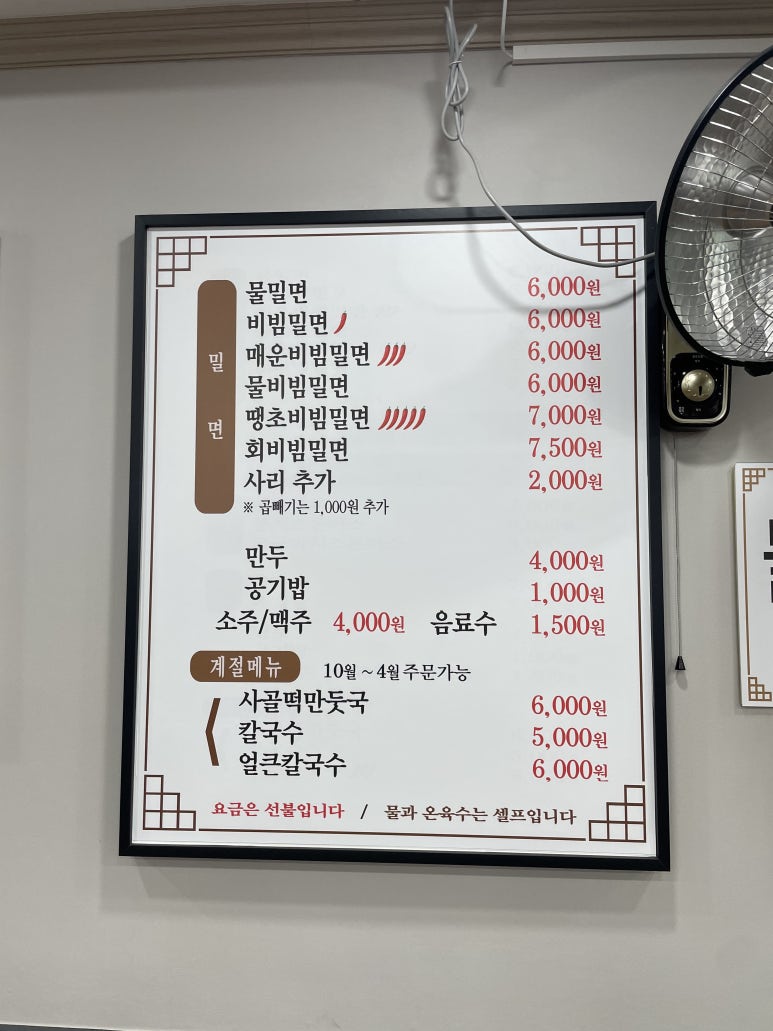 밀면
물밀면 6,000원
비빔밀면 6,000원
매운비빔밀면 6,000원
물비빔밀면 6,000원
땡초비빔밀면 7,000원
회비빔밀면 7,500원
사리 추가 2,000원
※ 곱빼기는 1,000원 추가
만두 4,000원
공기밥 1,000원
소주/맥주 4,000원 음료수 1,500원
계절메뉴 10월 ~ 4월 주문가능
사골떡만둣국 6,000원
칼국수 5,000원
얼큰칼국수 6,000원
요금은 선불입니다 / 물과 온육수는 셀프입니다